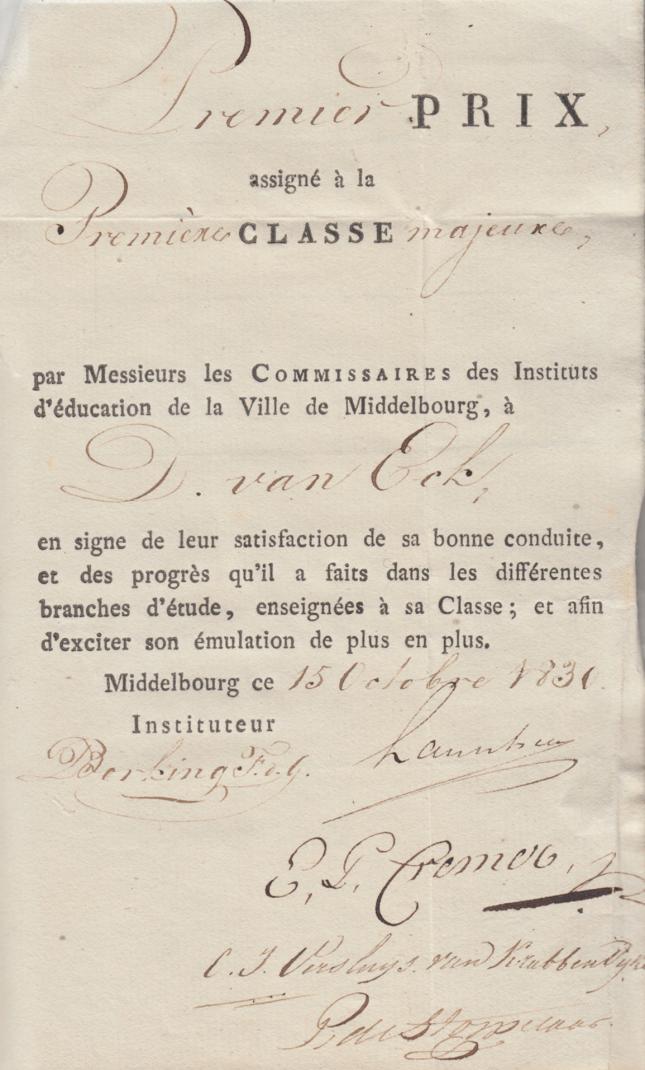 Premier PRIX,
assigné à la
Première CLASSE majeure,
par Messieurs les COMMISSAIRES des Instituts
d'éducation de la Ville de Middelbourg, à
D. van Eck,
en signe de leur satisfaction de sa bonne conduite,
et des progrès qu'il a faits dans les différentes
branches d'étude, enseignées à sa Classe; et afin
d'exciter son émulation de plus en plus.
Middelbourg ce 15 Octobre 1831.
Instituteur
E. P.
C. J. Versluys. van Krabbendyke
P. de